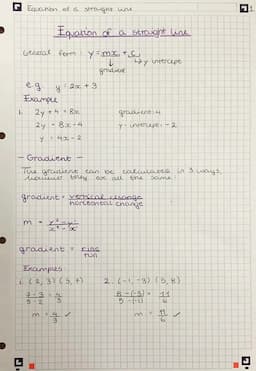 Equation of a straight line
1
Equation of a straight line
General form: y = mx + c
y intercept
gradient
e.g y = 2x + 3
Example
1. 2y + 4 = 8x gradient: 4
2y = 8x - 4 y-intercept: -2
y = 4x - 2
- Gradient -
The gradient can be calculated in 3 ways,
however they are all the same.
gradient = vertical change
horizontal change
m = y² - y¹
x² - x¹
gradient = rise
run
Examples
1. (2, 3) (5, 7) 2. (-1, -3) (5, 8)
7 - 3 = 4 8 - (-3) = 11
5 - 2 3 5 - (-1) 6
m = 4 ✓ m = 11 ✓
3 6